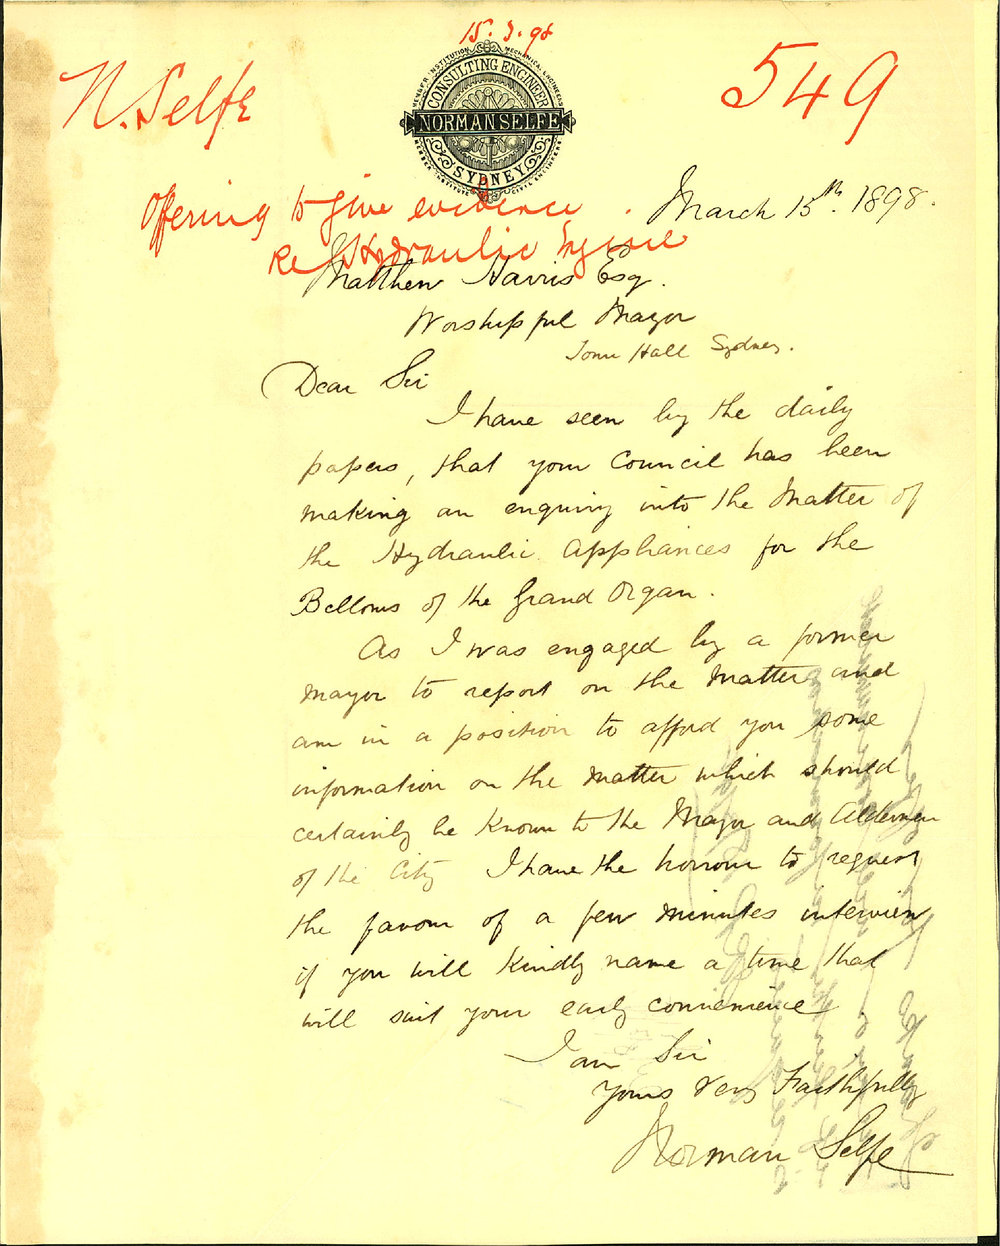 15.3.98
N. Selfe
549
MEMBER INSTITUTION MECHANICAL ENGINEERS
CONSULTING ENGINEER
NORMAN SELFE
SYDNEY
MEMBER INSTITUTE CIVIL ENGINEERS
Offering to give evidence
Re Hydraulic Engine
March 15th. 1898.
Matthew Harris Esq.
Worshipful Mayor
Town Hall Sydney.
Dear Sir
I have seen by the daily
papers, that your Council has been
making an enquiry into the Matter of
the Hydraulic Appliances for the
Bellows of the Grand Organ.
As I was engaged by a former
Mayor to report on the Matter and
am in a position to afford you some
information on the Matter which should
certainly be known to the Mayor and Aldermen
of the City I have the honour to request
the favour of a few minutes interview
if you will kindly name a time that
will suit your early convenience.
I am Sir
Yours Very Faithfully
Norman Selfe